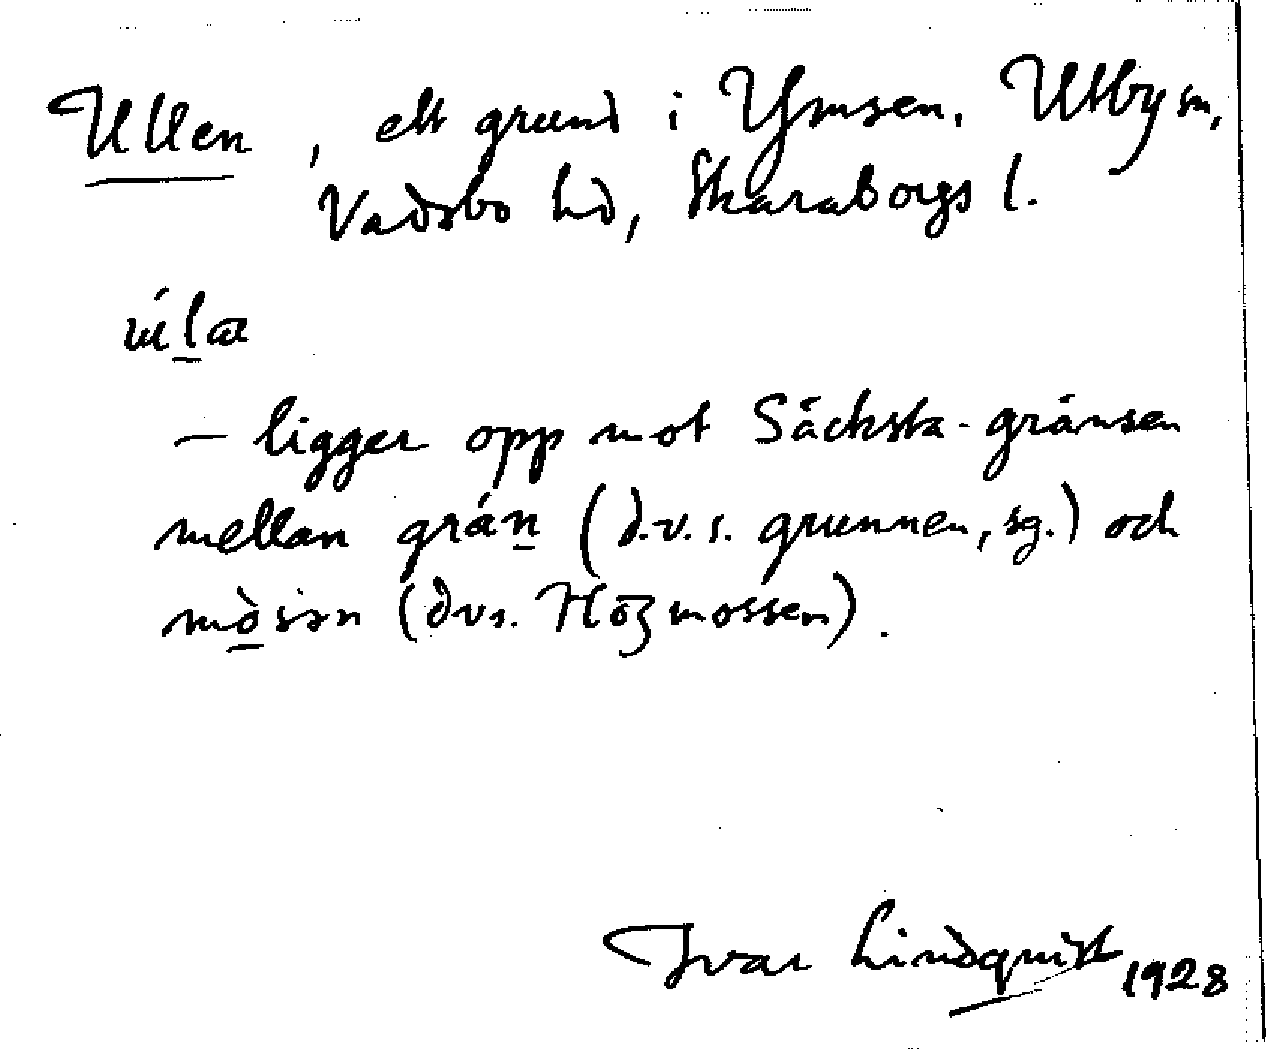 Ullen, ett grund i Ymsen. Utby sn,
Vadsbo hd, Skaraborgs l.
úlæ
– ligger opp mot Säcksta-gränsen
mellan grán (d.v.s. grunnen, sg.) och
mòsən (dvs. Högmossen).
Ivar Lindquist 1928